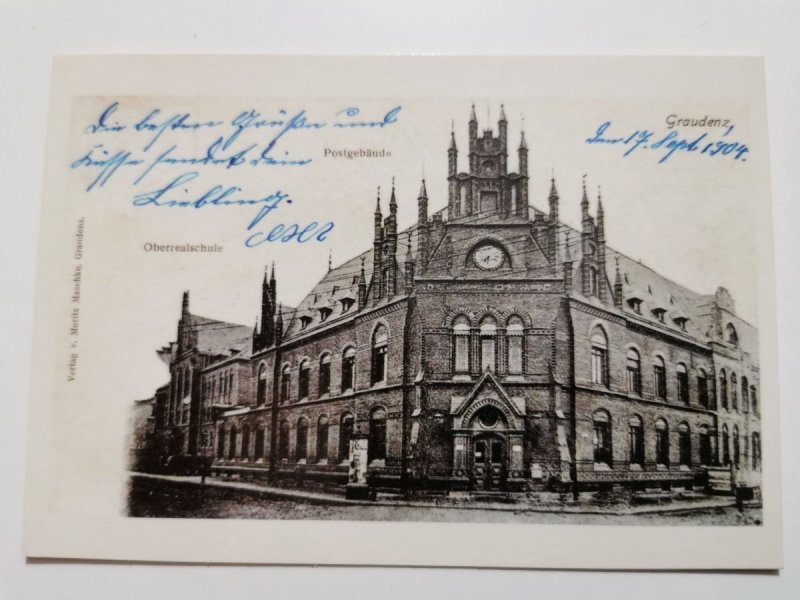 Die besten Grüße und
Küsse sendet dein
Liebling.
Graudenz,
Den 17. Sept 1904.
Postgebäude
Oberrealschule
Verlag v. Moritz Maschke, Graudenz.